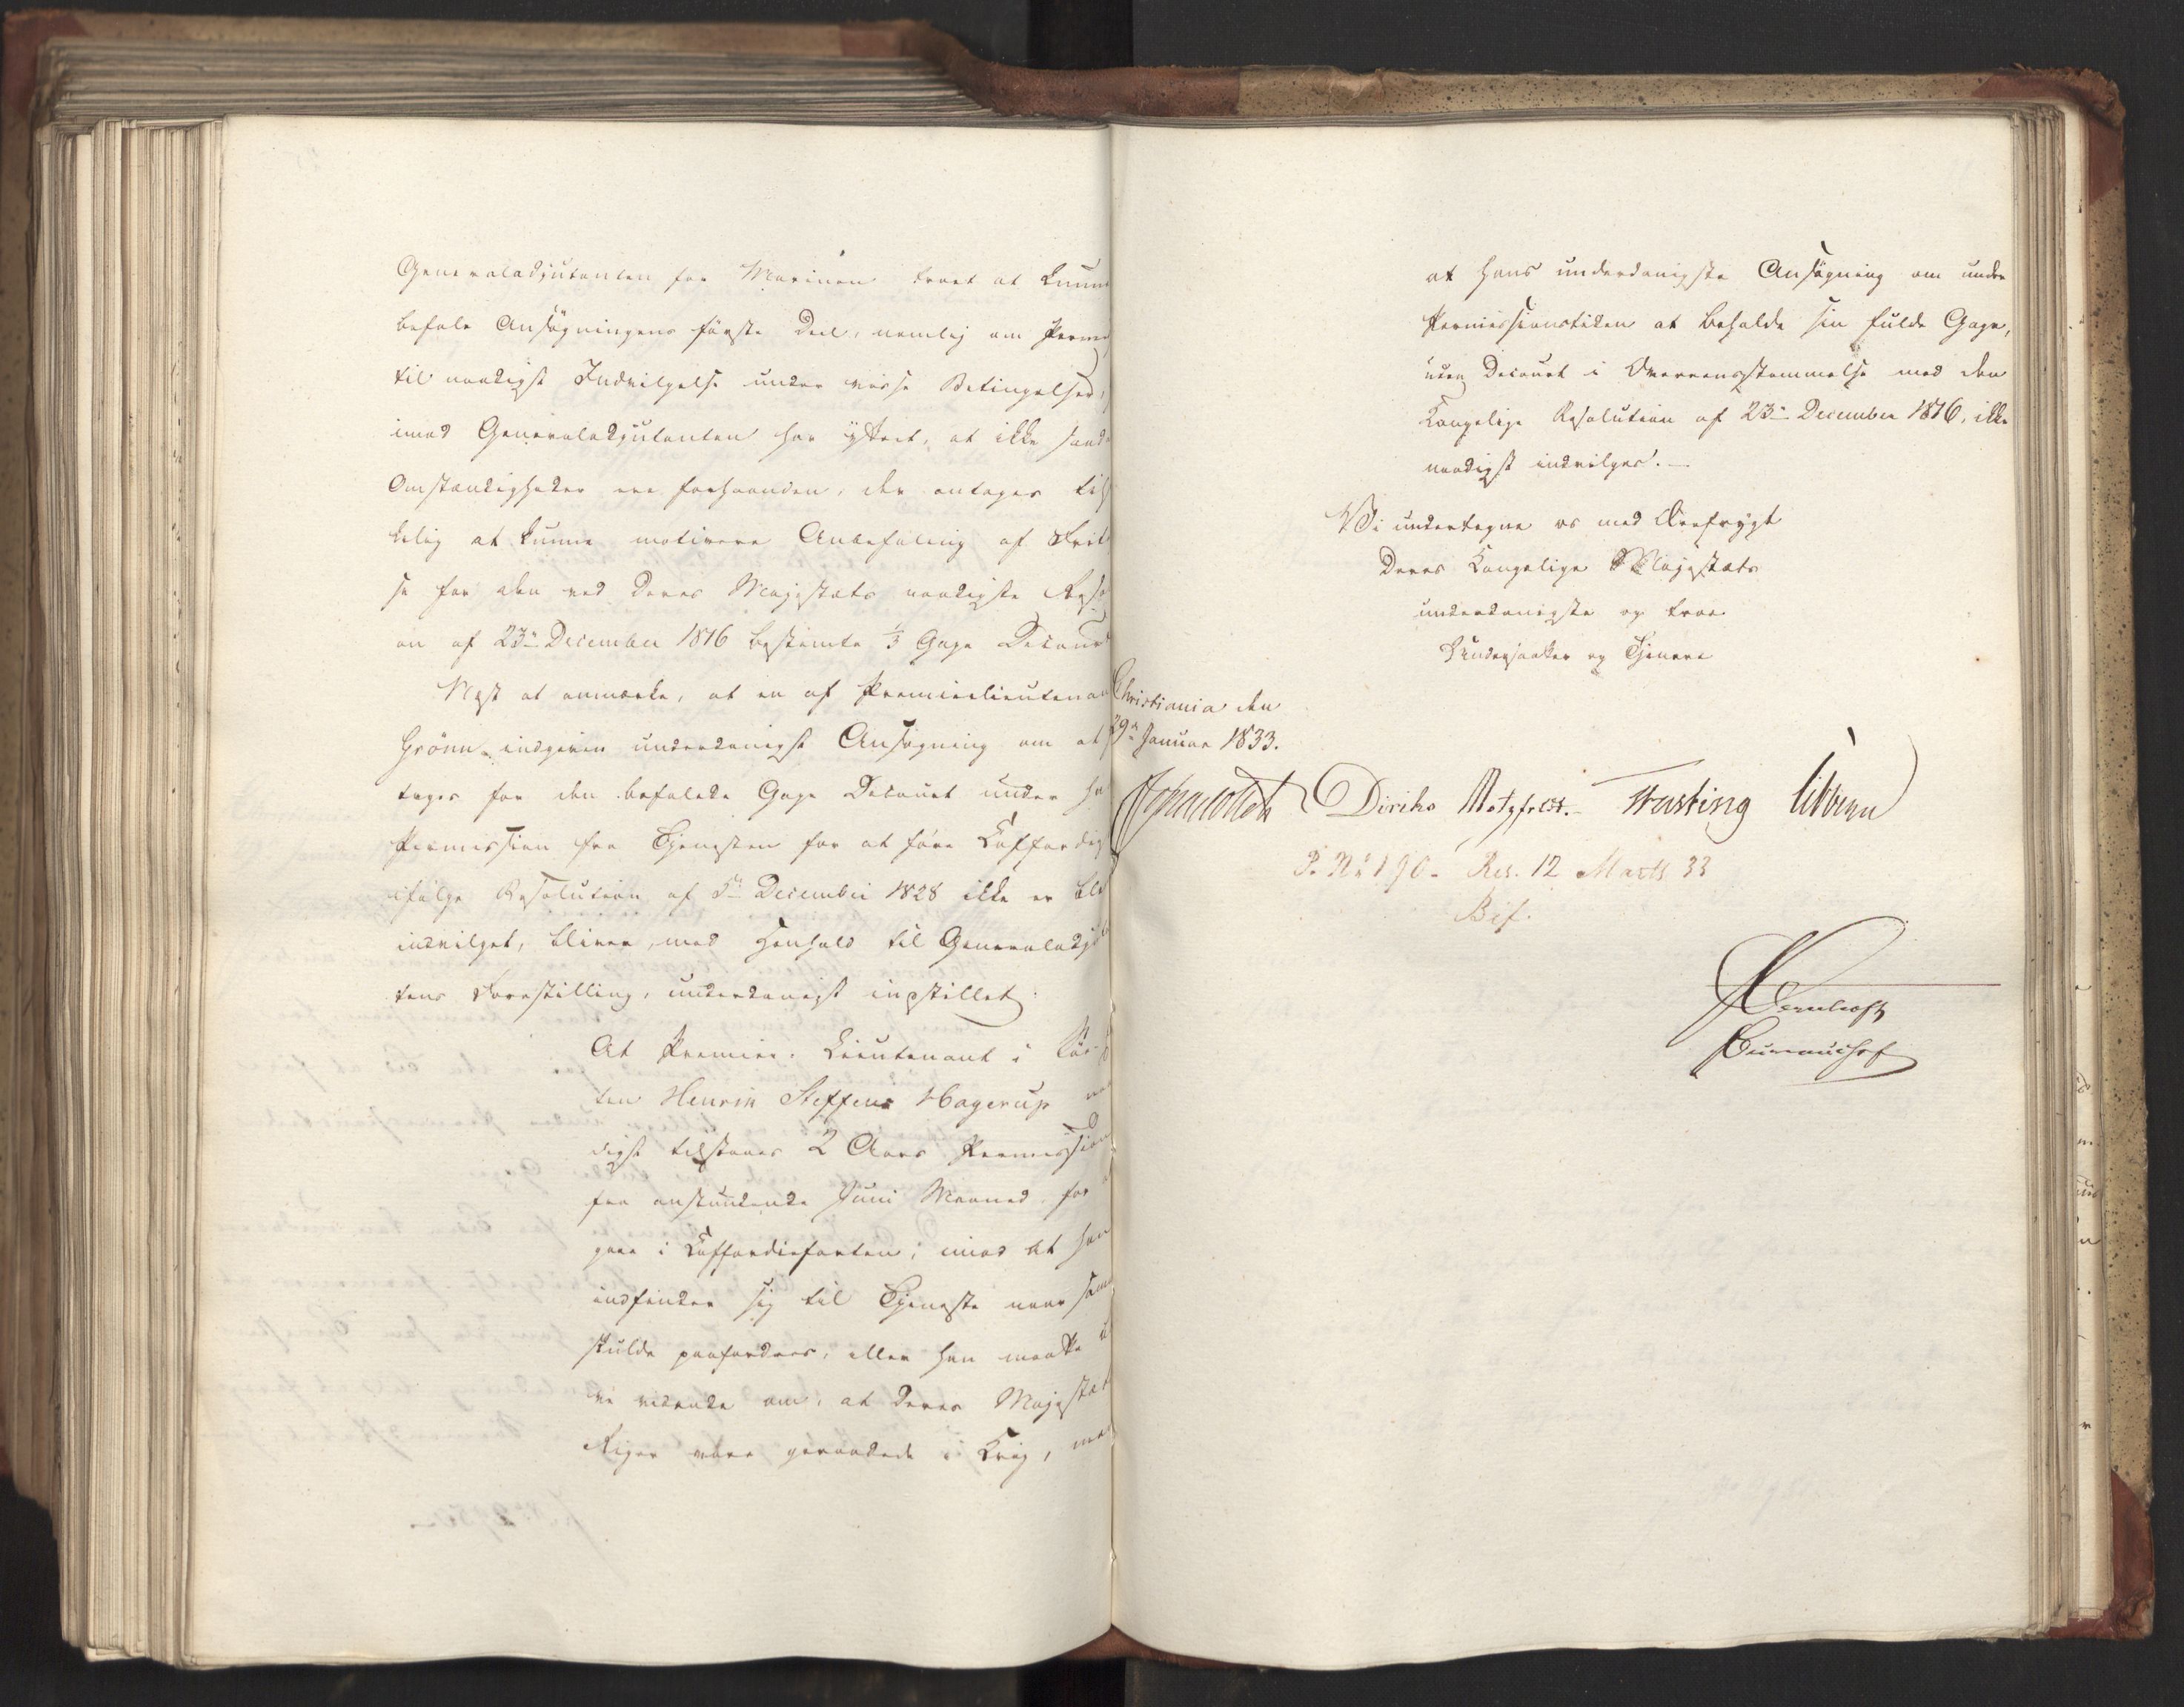 Generaladjutanten for Marinen troet at kunne
befale Ansøgningens første Deel, nemlig om Perm
til naadigst Indvilgelse under visse Betingelser,
imod Generaladjutanten har yttret, at ikke saad
Omstændigheder ere forhaanden, der antages til
kelig at kunne motivere Anbefaling af Frit
se for den ved Deres Majestæts naadigste Reso
on af 23de December 1816 bestemte 1/3 Gage Decourt
Næst at anmærke, at en af Premierlieutenan
Grönn indgiven underdanigst Ansøgning om at
tages for den befalede Gage Decourt under ha
Permission fra Tjenesten for at føre Koffardi
ifølge Resolution af 5te December 1828 ikke er ble
indvilget, bliver, med Henhold til Generaladju
tens Forestilling, underdanigst indstillet:
At Premier-Lieutenant i Sø
ten Henrik Steffens Hagerup na
digst tilstaaes 2 Aars Permission
fra anstundende Juni Maaned for
gaae i Koffardiefarten; imod at han
indfinder sig til Tjeneste naar saad
skulde paafordres, eller han maatte
ve vidende om, at Deres Majestæt
Riger vare geraadede i Krig, me
at hans underdanigste Ansøgning om under
Permissionstiden at beholde sin fulde Gage,
uden Decourt i Overensstemmelse med den
Kongelige Resolution af 23de December 1816, ikke
naadigst indvilges.
Vi undertegne os med Ærefrygt
Deres Kongelige Majestæts
underdanigste og troe
Undersaatter og Tjenere
Christiania den
29de Januar 1833.
Jonas Collett Diriks Motzfeldt. Fasting Vibe
P. No 190. Res. 12 Marts 33
Bif.
Bureauchef